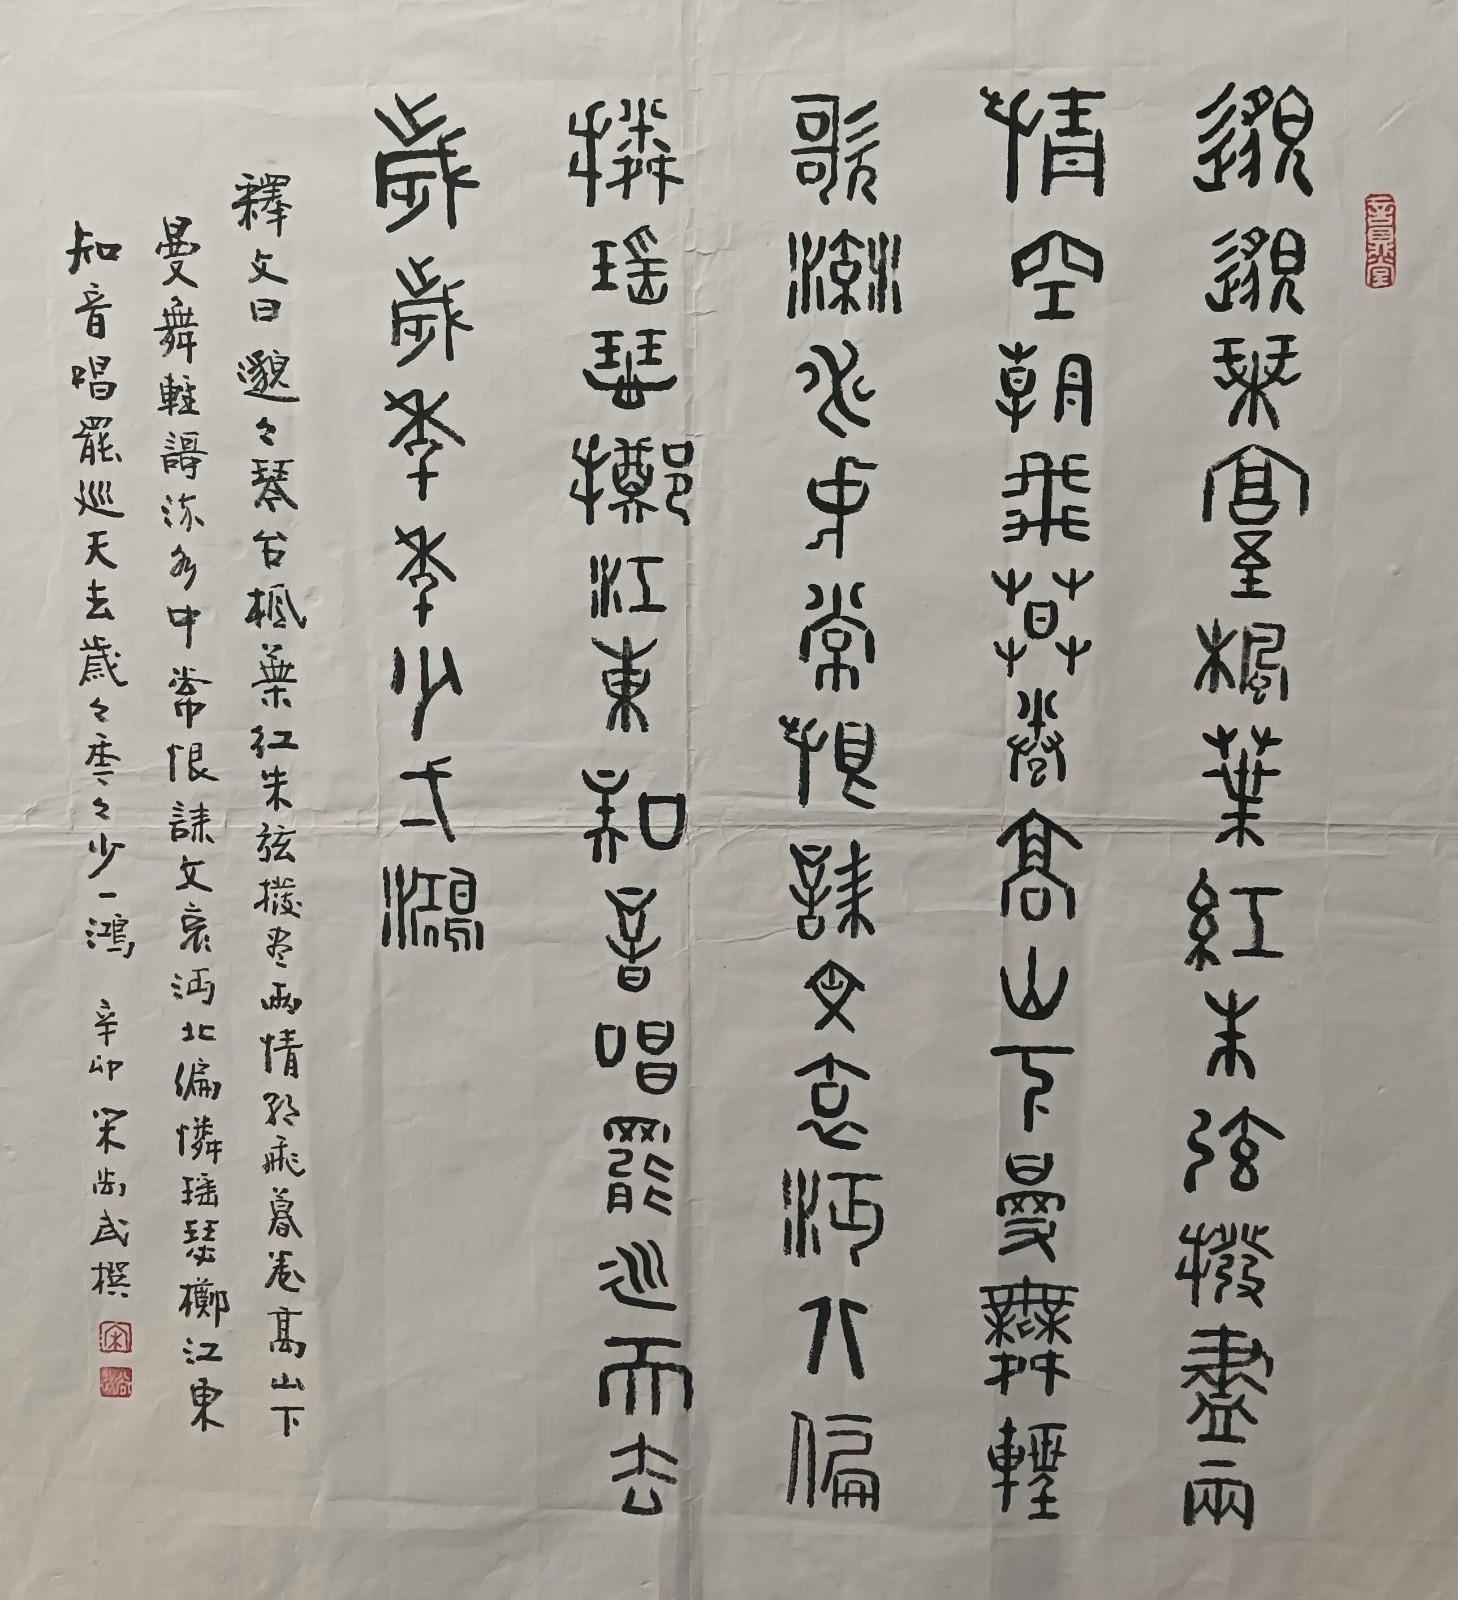 邈邈琴臺楓葉紅朱弦撥盡兩
情空朝飛暮卷高山下曼舞輕
歌流水中常恨誄文哀沔北偏
憐瑤瑟擲江東知音唱罷巡天去
歲歲季季少弌鴻
釋文曰邈々琴台楓葉紅朱弦撥尽兩情空朝飛暮卷高山下
曼舞輕謌流水中常恨誄文哀沔北偏憐瑶瑟擲江東
知音唱罷巡天去歲々季々少一鴻 辛卯 宋尚武撰